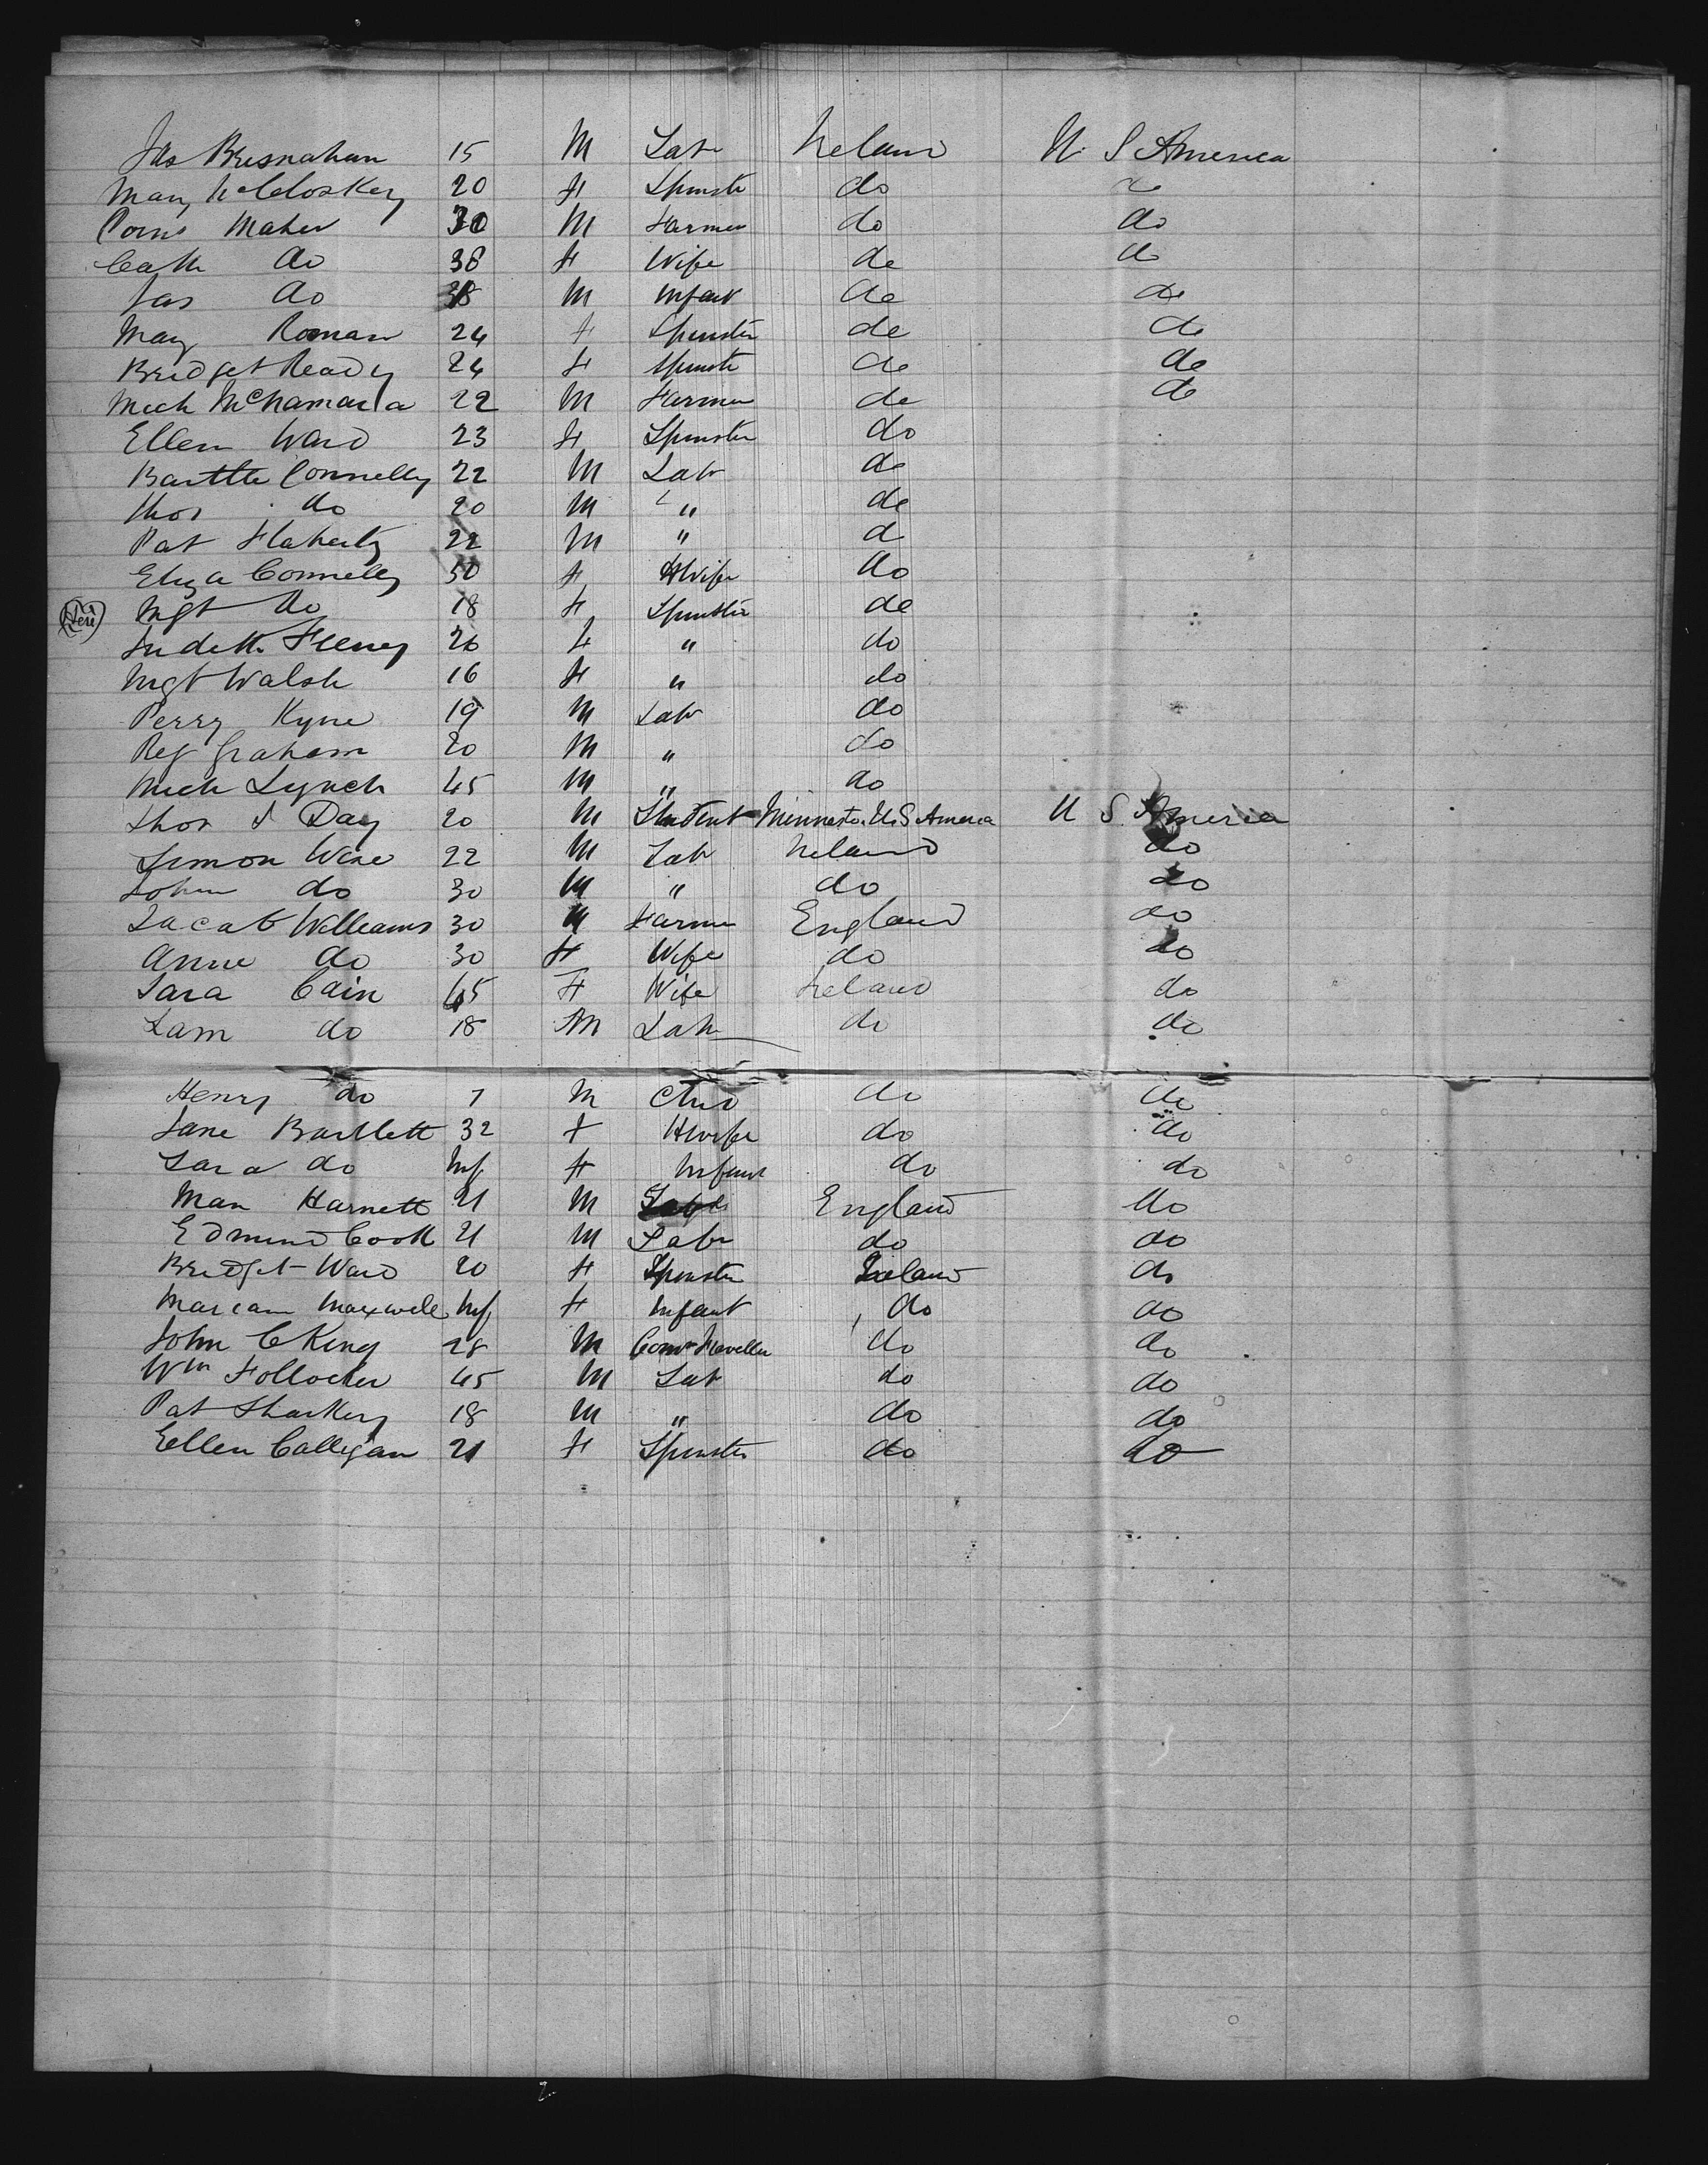 Jas Bresnahan 15 M Labr Ireland U. S America
Mary McCloskey 20 F Spinster do do
Maher 30 M Farmer do do
Cath do 38 F Wife do do
Jas do M Infant do do
Mary Ronan 24 F Spinster do do
Bridget Ready 24 F Spinster do do
Mich McNamara 22 M Farmer do do
Ellen Ward 23 F Spinster do
Bartle Connelly 22 M Labr do
Thos do 20 M " do
Pat Flaherty 22 M " do
Eliza Connelly 50 F HWife do
Mgt do 18 F Spinster do
Judith Feeney 20 F " do
Mgt Walsh 16 F " do
Perry Kyne 19 M Labr do
Graham 20 M " do
Mich Lynch 45 M " do
Thos J Day 20 M Student Minnesta. U. S America U S. America
Simon Wise 22 M Labr Ireland do
John do 30 M " do do
Jacob Williams 30 M Farmer England do
Anne do 30 F Wife do do
Sara Cain 45 F Wife Ireland do
Sam do 18 M Labr do do
Henry do 7 M Child do do
Jane Bartlett 32 F HWife do do
Sara do Inf F Infant do do
Man Harnett 21 M England do
Edmund Cook 21 M Labr do do
Bridget Ward 20 F Spinster Ireland do
Mariam Maxwell Inf F Infant do do
John C King 28 M Coml Traveller do do
Wm 45 M Labr do do
Pat Sharkey 18 M " do do
Ellen Calligan 21 F Spinster do do